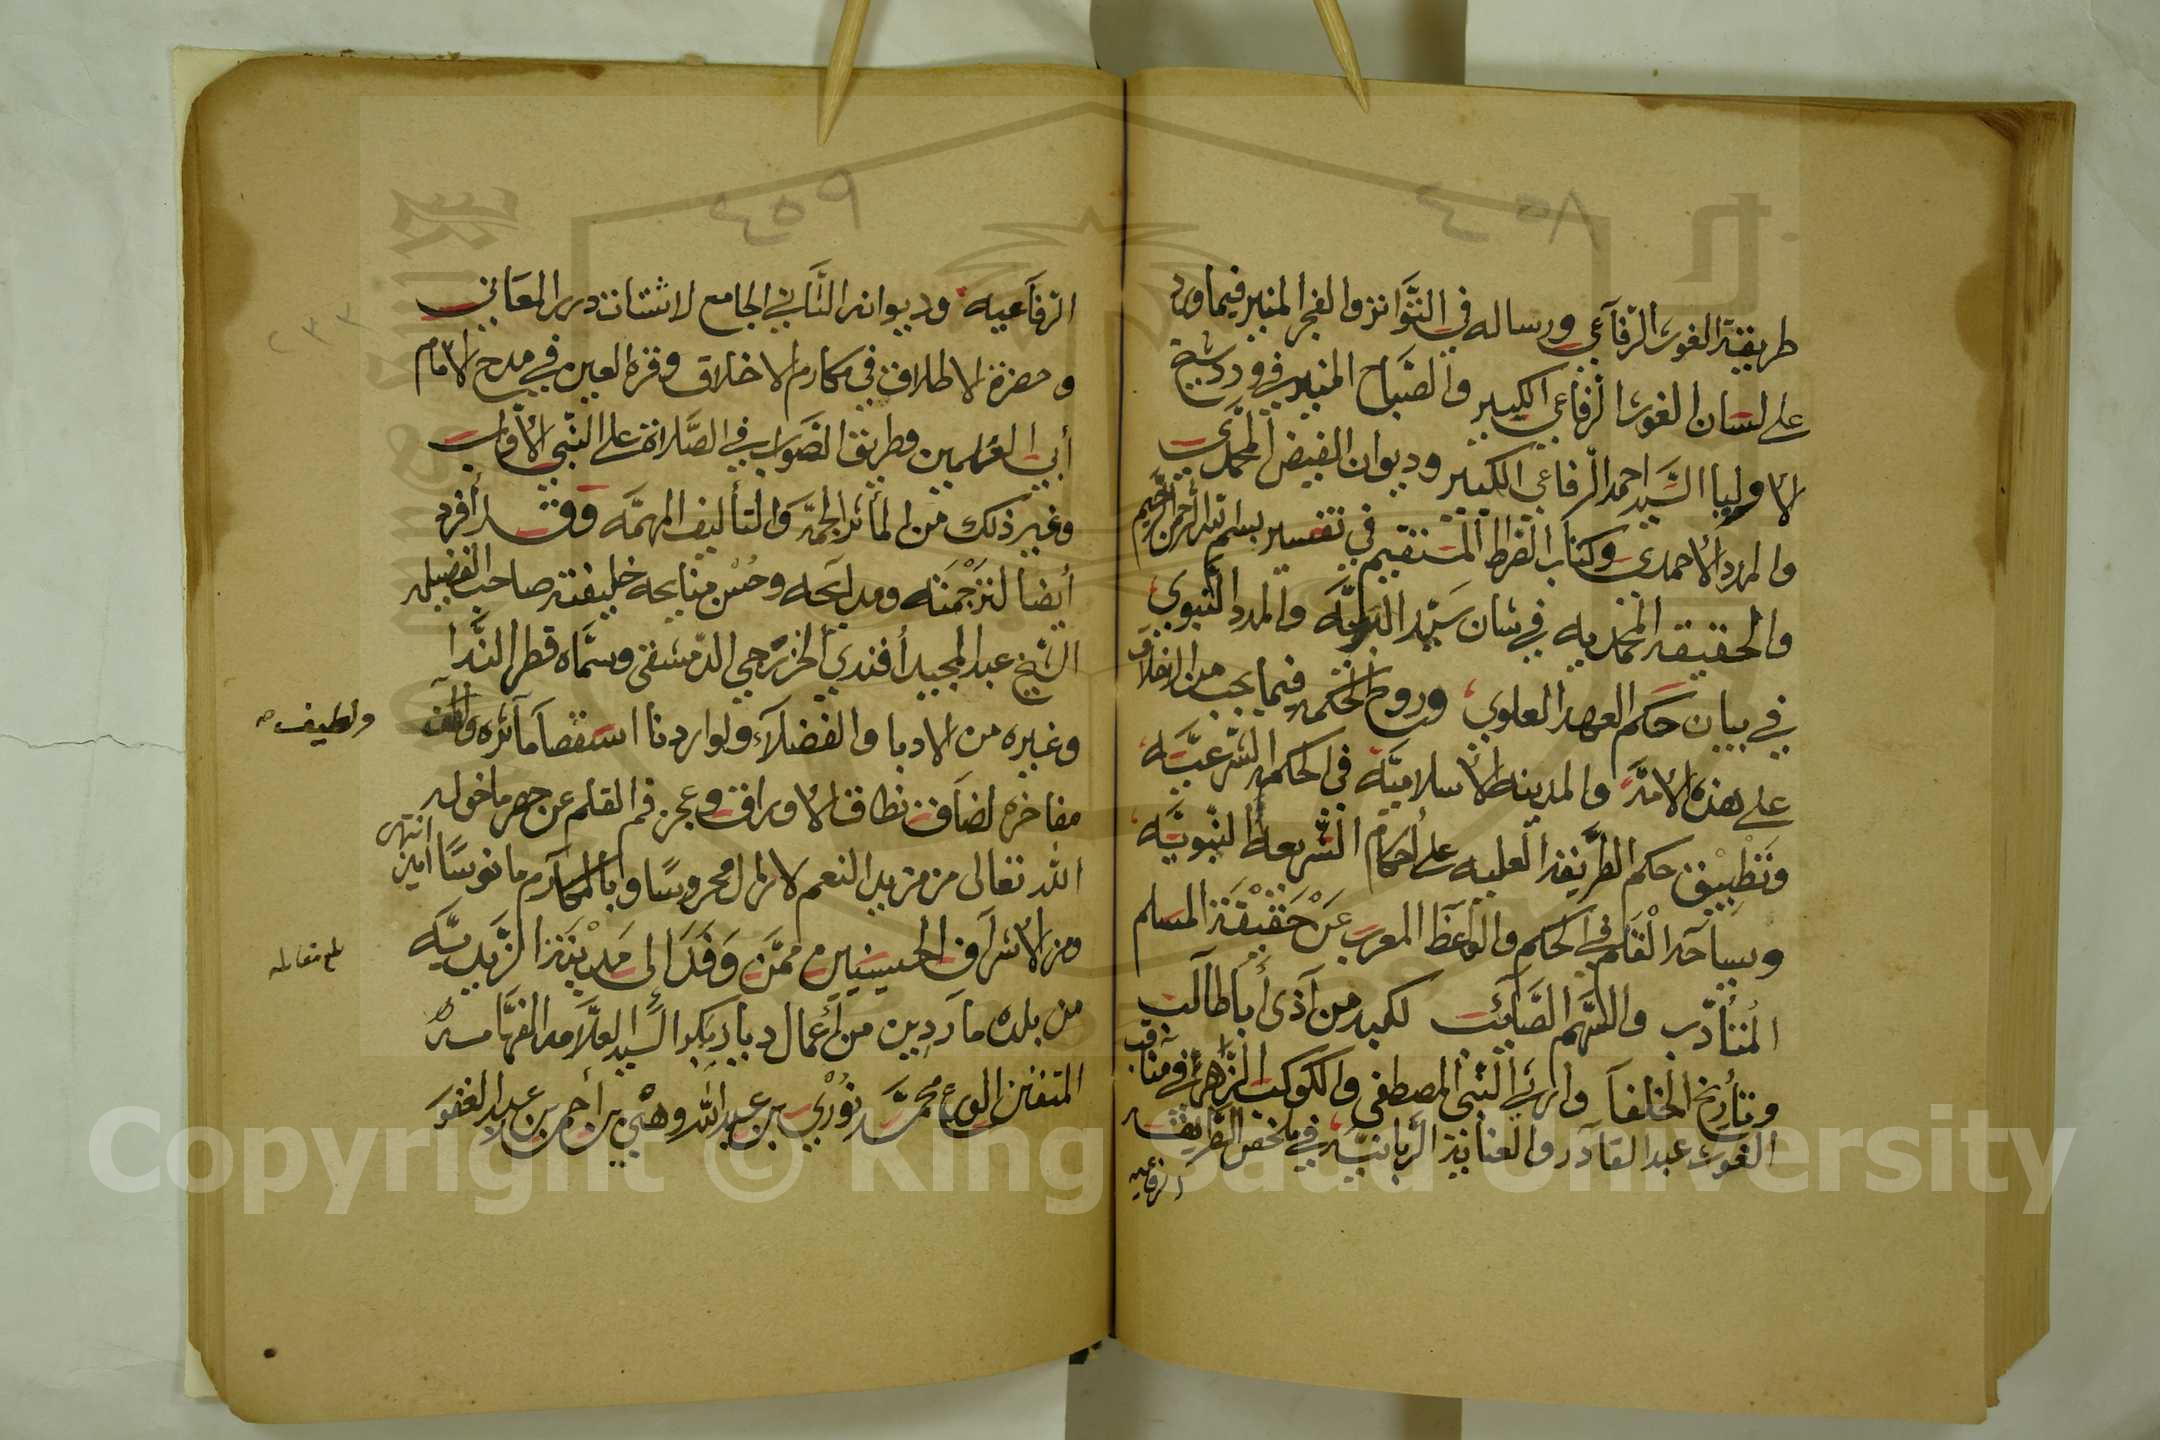 ٤٥٨
طريقة الغوث الرّفاعي ورساله في التّواتر والفجر المنير فيما ورد
على لسان الغوث الرّفاعي الكبير والصّباح المنير في ورد شيخ
الاوليا السّيد احمد الرّفاعي الكبير وديوان الفيض المحمّدي
والمدد الاحمدي وكتاب الصراط المستقيم في تفسير بسم الله الرحمن الرّحيم
والحقيقة المحمّديه في شان سَيّد البريّه والمدد النّبوي
في بيان حكم العهد العلوي وروض الحكمه فيما يجب من الاخلاق
على هذه الامّة والمدينة الاسلاميّة في الحكم الشّرعيّه
وتَطْبيق حكم الطّريقة العليه على أحكام الشّريعة النّبويّه
وسيَاحة القلم في الحكم والوعظ المعرب عَنْ حَقيْقَة المسلم
المُتأدّب والسّهم الصّائب لكبد من آذى أبا طالب
وتأريخ الخلفا وارث النّبي المصطفى والكوكب الزّاهر في مناقب
الغوث عبد القادر والعناية الرّبانيّه في ملخص الطّريقة
الرفاعيه
٤٥٩
الرّفاعيه وديوانه الثّاني الجامع لاشتات درر المعَاني
وحضرة الاطلاق في مكارم الاخلاق وقرة العين في مدح الامام
أبي العَلمين وطريق الصّواب في الصّلاة على النّبي الأوّاب
وغير ذلك من المآثر الجمّة والتّأليف المهمّه وَقد أفرد
أيضا لتَرْجَمَته ومدآئحه وحُسْن منايحه خليفته صاحب الفضيله
الشيخ عبد المجيد أفندي الخزرجي الدّمشقى وسمّاه قطر النَّدا
وغيره من الادبا والفضلآء ولو اردنا استقصآ مآثره
ولطيف صح
مفاخره لضَاق نطاق الاوراق وعجز فم القلم عن حصر ما خوله
الله تعالى من مزيد النعم لا زال محروسًا وبالمكآرم مانوسًا امين انتهى
ومن الاشرَاف الحسينيين ممّن وَفَدَ الى مَديْنَة الزَّبديَّه
بلغ مقابله
من بلده مآردين من أعمال ديار بكر السّيد العلّامة الفهّامه
المتفنن الورع محمّد نوُرْي بن عبد الله وهْبي بن أحمد بن عبد الغفور